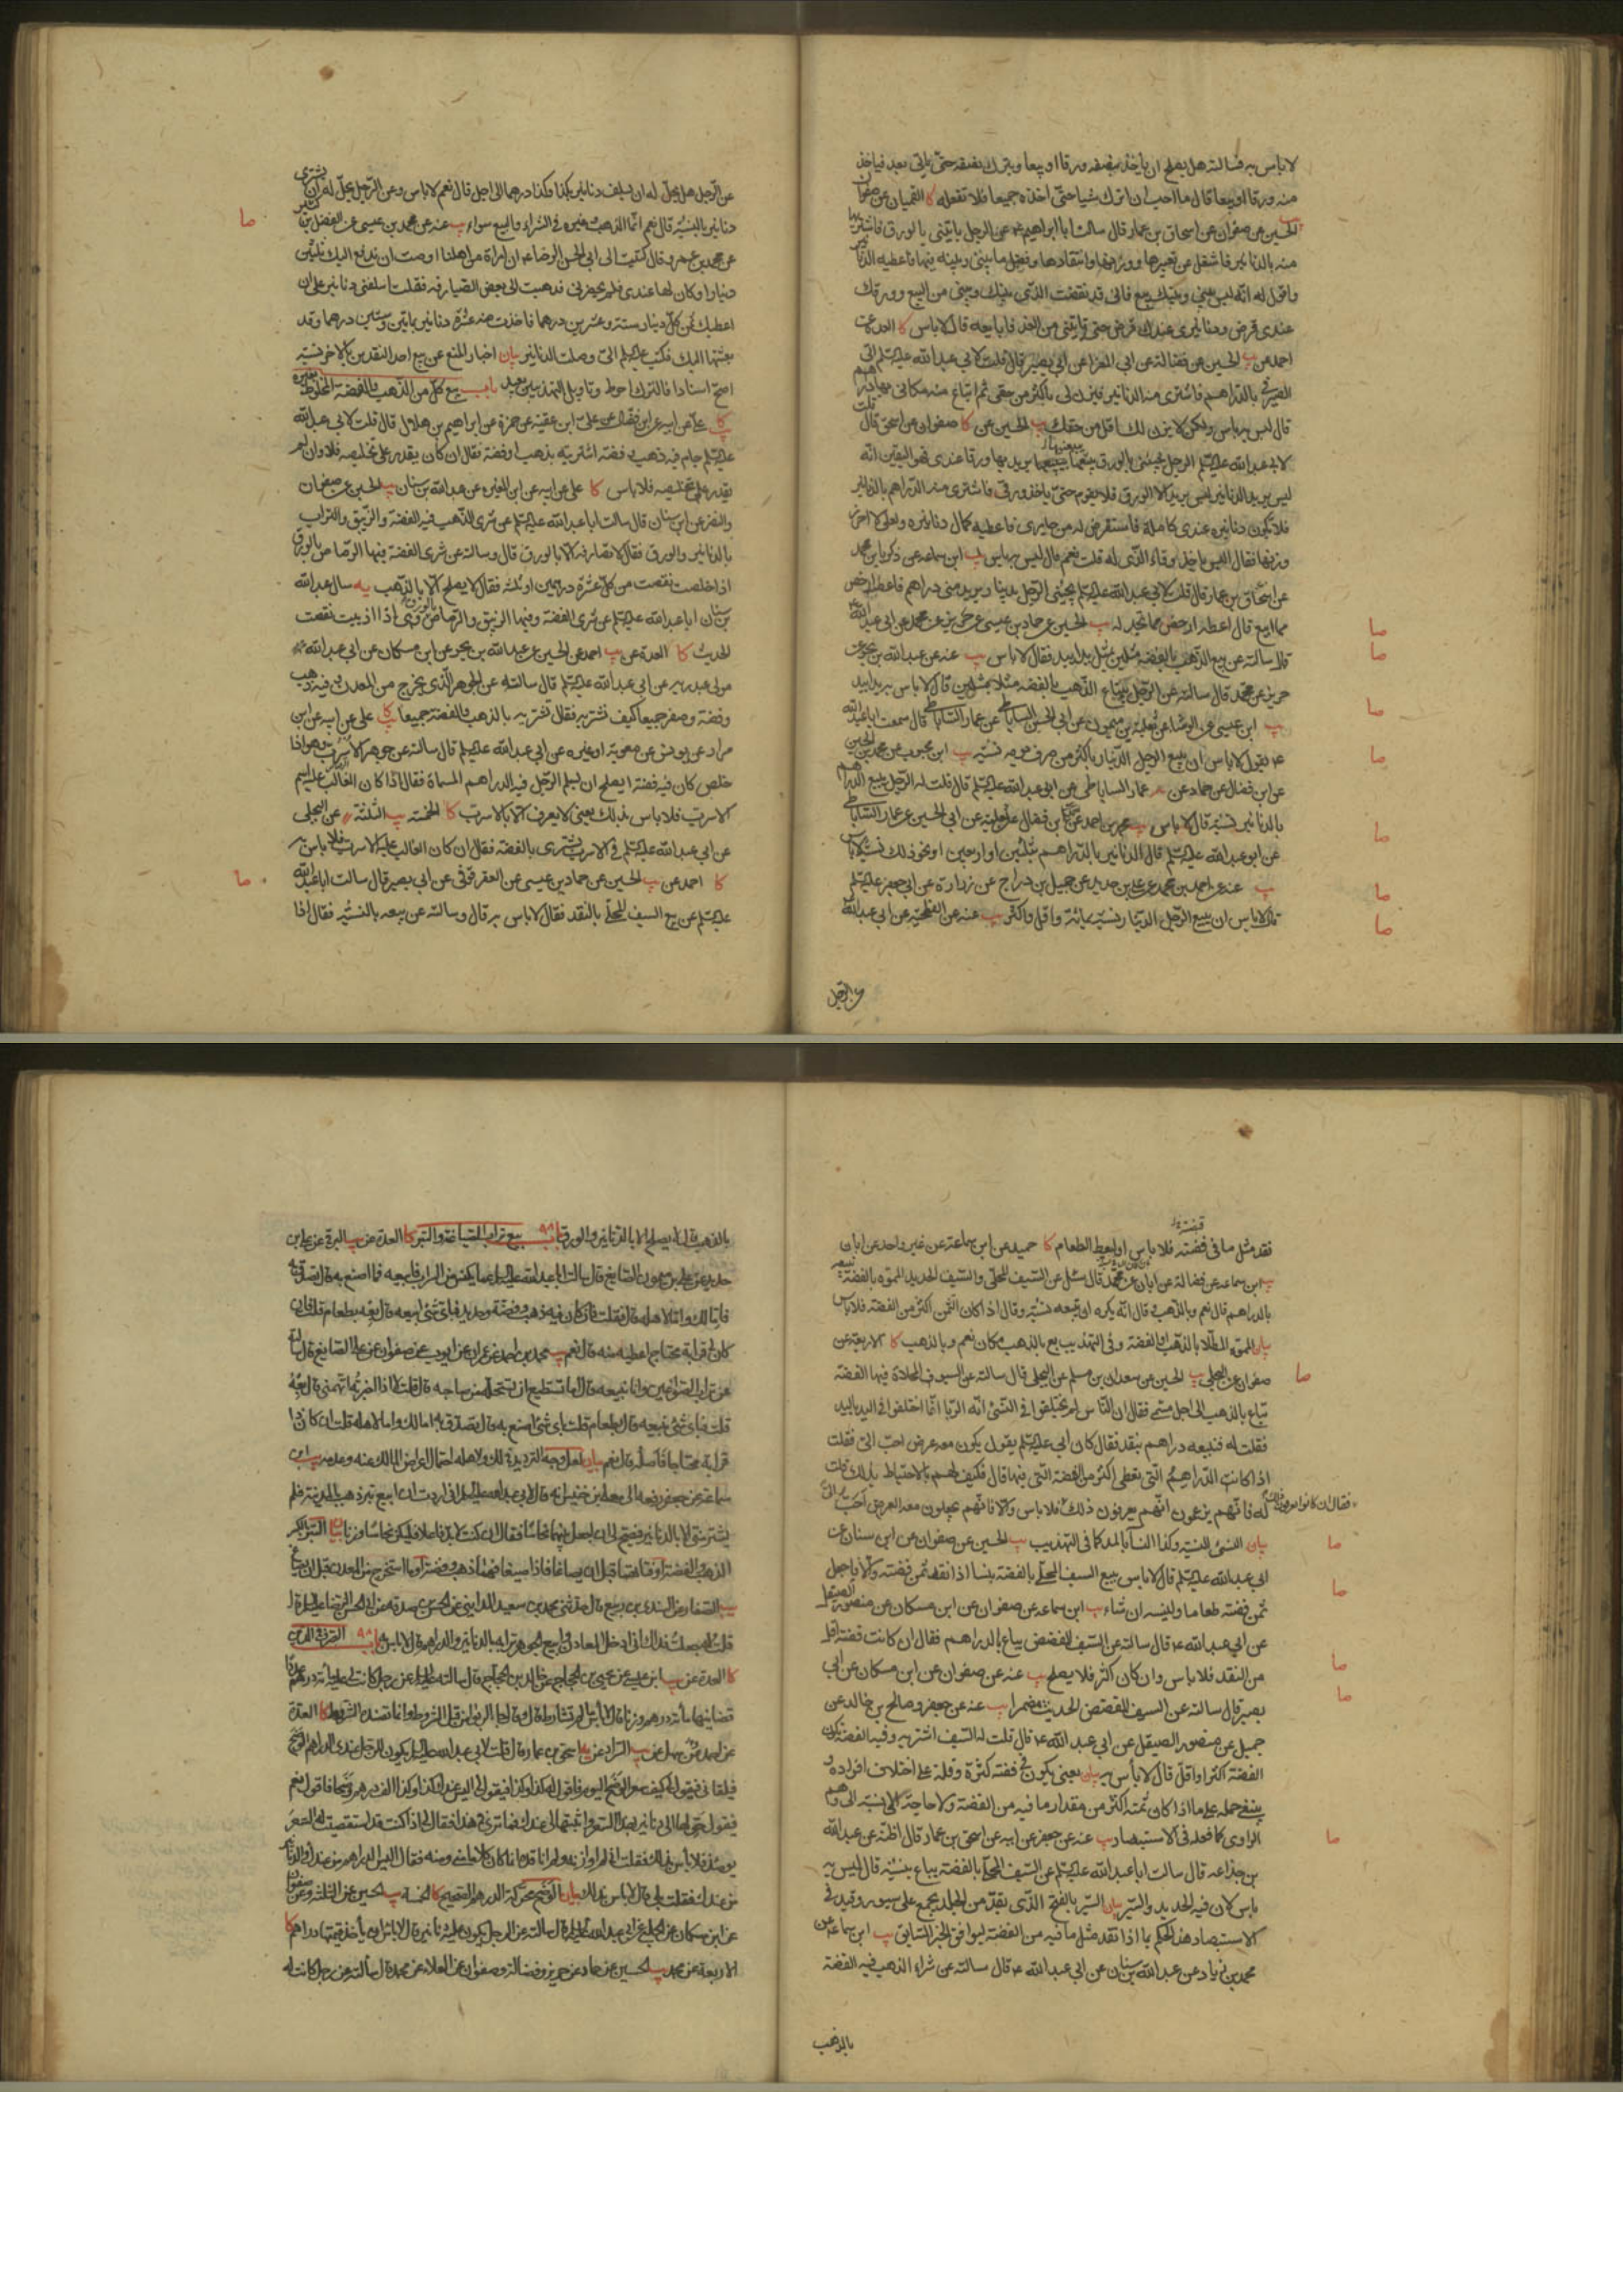 لا باس به فسالته هل يصلح ان ياخذ بنصفه ورقا او بيعا ويترك نصفه حتى ياتى بعد فياخذ
منه ورقا او بيعا قال ما احب ان اترك شيا حتى اخذه جميعا فلا تفعله كا القميان عن صفوان
الحسين عن صفوان عن اسحاق بن عمار قال سالت ابا ابراهيم ع عن الرجل ياتينى بالورق فاشتريها
منه بالدنانير فاشغل عن تعييرها ووزنها وانتقادها وفضل ما بينى وبينه فيها فاعطيه الدنانير
واقول له انه ليس بينى وبينك بيع فانى قد نقضت الذى بينك وبينى من البيع وورقك
عندى قرض ودنانيرى عندك قرض حتى تاتينى من الغد فابايعه قال لا باس كا العدة عن
احمد عن يب الحسين عن فضالة عن ابى المغرا عن ابى بصير قال قلت لابى عبدالله عليه السلم اتى
الصيرفى بالدراهم فاشترى منه الدنانير فيزن لى باكثر من حقى ثم ابتاع منه مكانى بها دراهم
قال ليس به باس ولكن لا يزن لك اقل من حقك يب الحسين عن كا صفوان عن اسحق قال قلت
لابى عبدالله عليه السلم الرجل يجيئنى بالورق يبيعنيها يريد بها ورقا عندى فهو اليقين انه
ليس يريد الدنانير ليس يريد الا الورق فلا يقوم حتى ياخذ ورقى فاشترى منه الدراهم بالدنانير
فلا تكون دنانيره عندى كاملة فاستقرض له من جارى فاعطيه كمال دنانيره ولعلى لا احرز
وزنها فقال اليس ياخذ وفاء الذى له قلت نعم قال ليس به باس يب ابن سماعه عن زكريا بن محمد
عن اسحاق بن عمار قال قلت لابى عبدالله عليه السلم يجيئنى الرجل بدينار يريد منى دراهم فاعطيه ارخص
مما ابيع قال اعطه ارخص مما تجد له يب الحسين عن حماد بن عيسى عن حريز عن محمد عن ابى عبدالله
قال سالته عن بيع الذهب بالفضة مثلين بمثل يدا بيد فقال لا باس يب عنه عن عبدالله بن بحر عن
حريز عن محمد قال سالته عن الرجل يبتاع الذهب بالفضه مثلا بمثلين قال لا باس به يدا بيد
يب ابن عيسى عن الوشاء عن ثعلبة بن ميمون عن ابى الحسن الساباطى عن عمار الساباطى قال سمعت ابا عبدالله
ع يقول لا باس ان يبيع الرجل الدينار باكثر من صرف يومه نسيه يب ابن محبوب عن محمد بن الحسين
عن ابن فضال عن حماد عن عمار الساباطى عن ابى عبدالله عليه السلم قال قلت له الرجل يبيع الدراهم
بالدنانير نسية قال لا باس يب محمد بن احمد عن ابن فضال عن ثعلبة عن ابى الحسين عن عمار الساباطى
عن ابو عبدالله عليه السلم قال الدنانير بالدراهم بثلثين او اربعين او نحو ذلك نسية لا باس
يب عنه عن احمد بن محمد عن على بن حديد عن جميل بن دراج عن زرارة عن ابى جعفر عليه السلم
قال لا باس ان يبيع الرجل الدينار نسية بمائة واقل واكثر يب عنه عن الفطحية عن ابى عبدالله
عن الرجل
عن الرجل هل يحل له ان يسلف دنانير بكذا وكذا درهما الى اجل قال نعم لا باس وعن الرجل يحل له ان يشترى
دنانير بالنسية قال نعم انما الذهب وغيره فى الشراء والبيع سواء يب عنه عن محمد بن عيسى عن الفضل بن كثير
عن محمد بن عمرو قال كتبت الى ابى الحسن الرضا ع ان امراة من اهلنا اوصت ان ندفع اليك ثلثين
دينارا وكان لها عندى فلم يحضرنى فذهبت الى بعض الصيارفه فقلت اسلفنى دنانير على ان
اعطيك ثمن كل دينار ستة وعشرين درهما فاخذت منه عشرة دنانير بماتين وستين درهما وقد
بعثتها اليك فكتب عليه السلم الى وصلت الدنانير بيان اخبار المنع عن بيع احد النقدين بالاخر نسيه
اصح اسنادا فالترك احوط وتاويل التهذيبين بعيد باب بيع كل من الذهب والفضة المخلوط بغيره
كا على عن ابيه عن ابن فضال عن على بن عقبه عن حمزة عن ابراهيم بن هلال قال قلت لابى عبدالله
عليه السلم جام فيه ذهب وفضة اشتريه بذهب او فضة فقال ان كان يقدر على تخليصه فلا وان لم
يقدر على تخليصه فلا باس كا على عن ابيه عن ابن المغيره عن عبدالله بن سنان يب الحسين عن صفوان
والنضر عن ابن سنان قال سالت ابا عبدالله عليه السلم عن شرى الذهب فيه الفضة والزيبق والتراب
بالدنانير والورق فقال لا تصارفه الا بالورق قال وسالته عن شرى الفضة فيها الرصاص بالورق
اذا خلصت نقصت من كل عشرة درهمين او ثلثه فقال لا يصلح الا بالذهب يه سال عبدالله
بن سنان ابا عبدالله عليه السلم عن شرى الفضة وفيها الزيبق والرصاص بالورق وهى اذا اذيبت نقصت
الحديث كا العدة عن يب احمد عن الحسين عن عبدالله بن بحر عن ابن مسكان عن ابى عبدالله
مولى عبد ربه عن ابى عبدالله عليه السلم قال سالته عن الجوهر الذى يخرج من المعدن وفيه ذهب
وفضة وصفر جميعا كيف نشتريه فقال تشتريه بالذهب والفضة جميعا كا على عن ابيه عن ابن
مرار عن يونس عن معوية او غيره عن ابى عبدالله عليه السلم قال سالته عن جوهر الاسرب وهو اذا
خلص كان فيه فضة ايصلح ان يسلم الرجل فيه الدراهم المسماة فقال اذا كان الغالب عليه اسم
الاسرب فلا باس بذلك يعنى لا يعرف الا بالاسرب كا الخمسة يب الثلثة عن البجلى
عن ابى عبدالله عليه السلم فى الاسرب يشترى بالفضه فقال ان كان الغالب عليه الاسرب فلا باس به
كا احمد عن يب الحسين عن حماد بن عيسى عن العقرقوفى عن ابى بصير قال سالت ابا عبدالله
عليه السلم عن بيع السيف المحلى بالنقد فقال لا باس به قال وسالته عن بيعه بالنسية فقال اذا
نقد مثل ما فى فضته فلا باس او ليعط الطعام كا حميد عن ابن سماعة عن غير واحد عن ابان
يب ابن سماعه عن فضالة عن ابان عن محمد قال سئل عن السيف المحلى والسيف الحديد المموه بالفضة نبيعه
بالدراهم قال نعم وبالذهب قال انه يكره ان تبيعه نسية وقال اذا كان الثمن اكثر من الفضة فلا باس
بيان المموه المطلا بالذهب او الفضة وفى التهذيب بيع بالذهب مكان نعم وبالذهب كا الاربعة عن
صفوان عن البجلى يب الحسين عن سعدان بن مسلم عن البجلى قال سالته عن السيوف المحلاة فيها الفضة
تباع بالذهب الى اجل مسمى فقال ان الناس لم يختلفوا فى النسئ انه الربا انما اختلفوا فى اليد باليد
فقلت له فنبيعه دراهم بنقد فقال كان ابى عليه السلم يقول يكون معه عرض احب الى فقلت
اذا كانت الدراهم التى تعطى اكثر من الفضة التى فيها قال فكيف لهم بالاحتياط بذلك قلت
له فانهم يزعمون انهم يعرفون ذلك فقال ان كانوا يعرفون ذلك فلا باس والا فانهم يجعلون معه العرض احب الى
بيان النسئ النسية وكذا النسا بالمد كما فى التهذيب يب الحسين عن صفوان عن ابن سنان عن
ابى عبدالله عليه السلم قال لا باس ببيع السيف المحلى بالفضة بنسا اذا نقد ثمن فضته والا فاجعل
ثمن فضته طعاما ولينسه ان شاء يب ابن سماعه عن صفوان عن ابن مسكان عن منصور الصيقل
عن ابى عبدالله ع قال سالته عن السيف المفضض يباع بالدراهم فقال ان كانت فضته اقل
من النقد فلا باس وان كان اكثر فلا يصلح يب عنه عن صفوان عن ابن مسكان عن ابى
بصير قال سالته عن السيف المفضض الحديث مضمرا يب عنه عن جعفر وصالح بن خالد عن
جميل عن منصور الصيقل عن ابى عبدالله ع قال قلت له السيف اشتريه وفيه الفضة تكون
الفضة اكثر او اقل قال لا بأس به بيان يعنى يكون فضته كثرة وقلة على اختلاف افراده و
ينبغى حمله على ما اذا كان ثمنه اكثر من مقدار ما فيه من الفضة ولا حاجة الى نسبته الى وهم
الراوى كما فعله فى الاستبصار يب عنه عن جعفر عن ابيه عن اسحق بن عمار قال اظنه عن عبدالله
بن جذاعه قال سالت ابا عبدالله عليه السلم عن السيف المحلى بالفضة يباع بنسية قال ليس به
باس لان فيه الحديد والسير بيان السير بالفتح الذى يقد من الجلد يجمع على سيور وقيد فى
الاستبصار هذا الحكم بما اذا نقد مثل ما فيه من الفضة ليوافق الخبر السابق يب ابن سماعه عن
محمد بن زياد عن عبدالله بن سنان عن ابى عبدالله ع قال سالته عن شراء الذهب فيه الفضة
بالذهب
بالذهب قال لا يصلح الا بالدنانير والورق باب بيع تراب الصياغة والتبر كا العدة عن يب البرقى عن على بن
حديد عن على بن ميمون الصايغ قال سالت ابا عبدالله عليه السلم عما يكنس من التراب فابيعه فما اصنع به قال تصدق به
فاما لك واما لاهله قال فقلت فان كان فيه ذهب وفضة وحديد فباى شئ ابيعه قال بعه بطعام قلت فان
كان لى قرابة محتاج اعطيه منه قال نعم يب محمد بن احمد عن عمران عن ايوب عن صفوان عن على الصايغ قال سالته
عن تراب الصواغين وانا نبيعه قال اما تستطيع ان تستحله من صاحبه قال قلت لا اذا اخبرته اتهمنى قال بعه
قلت فباى شئ نبيعه قال بطعام قلت فاى شئ اصنع به قال تصدق به اما لك واما لاهله قلت ان كان ذا
قرابة محتاجا فاصله قال نعم بيان لعل وجه الترديد فى لك ولاهله احتمال اعراض المالك عنه وعدمه يب ابن
سماعة عن جعفر رفعه الى معلى بن خنيس انه قال لابى عبدالله عليه السلم انى اردت ان ابيع تبر ذهب بالمدينة فلم
يشتر منى الا بالدنانير فيصح لى ان اجعل بينهما نحاسا فقال ان كنت لابد فاعلا فليكن نحاسا وزنا بيان التبر بالكسر
الذهب والفضة او فتاتهما قبل ان يصاغا فاذا صيغا فهما ذهب وفضة او ما استخرج من المعدن قبل ان يصاغ
يب الصفار عن السندى بن ربيع قال حدثنى محمد بن سعيد المداينى عن الحسن بن صدقة عن ابى الحسن الرضا عليه السلم قال
قلت له جعلت فداك انى ادخل المعادن وابيع الجوهر بترابه بالدنانير والدراهم قال لا باس به باب
كا العدة عن يب ابن عيسى عن يحيى بن الحجاج عن خالد بن الحجاج قال سالته عليه السلم عن رجل كانت لى عليه مائة درهم عددا
قضانيها مائة درهم وزنا قال لا باس ما لم تشارط قال وقال جاء الربا من قبل الشروط وانما تفسده الشروط كا العدة
عن احمد وسهل عن يب السراد عن اسحق بن عمار قال قلت لابى عبدالله عليه السلم يكون للرجل عندى الدراهم الوضح
فيلقانى فيقول لى كيف سعر الوضح اليوم فاقول له كذا وكذا فيقول لى اليس عندك كذا وكذا الف درهم وضحا فاقول نعم
فيقول حولها الى دنانير بهذا السعر واثبتها لى عندك فما ترى فى هذا فقال لى اذا كنت قد استقصيت له السعر
يومئذ فلا باس بذلك فقلت انى لم اوازنه ولم اناقده انما كان كلام منى ومنه فقال اليس الدراهم من عندك والدنانير
من عندك فقلت بلى قال لا باس بذلك بيان الوضح محركة الدرهم الصحيح كا الخمسة يب الحسين عن الثلثة وعن صفوان
عن ابن مسكان عن الحلبى عن ابى عبدالله عليه السلم قال سالته عن الرجل يكون عليه دنانير قال لا باس ان ياخذ قيمتها دراهم كا
الاربعة عن محمد يب الحسين عن حماد عن حريز وفضالة وصفوان عن العلاء عن محمد قال سألته عن رجل كانت له